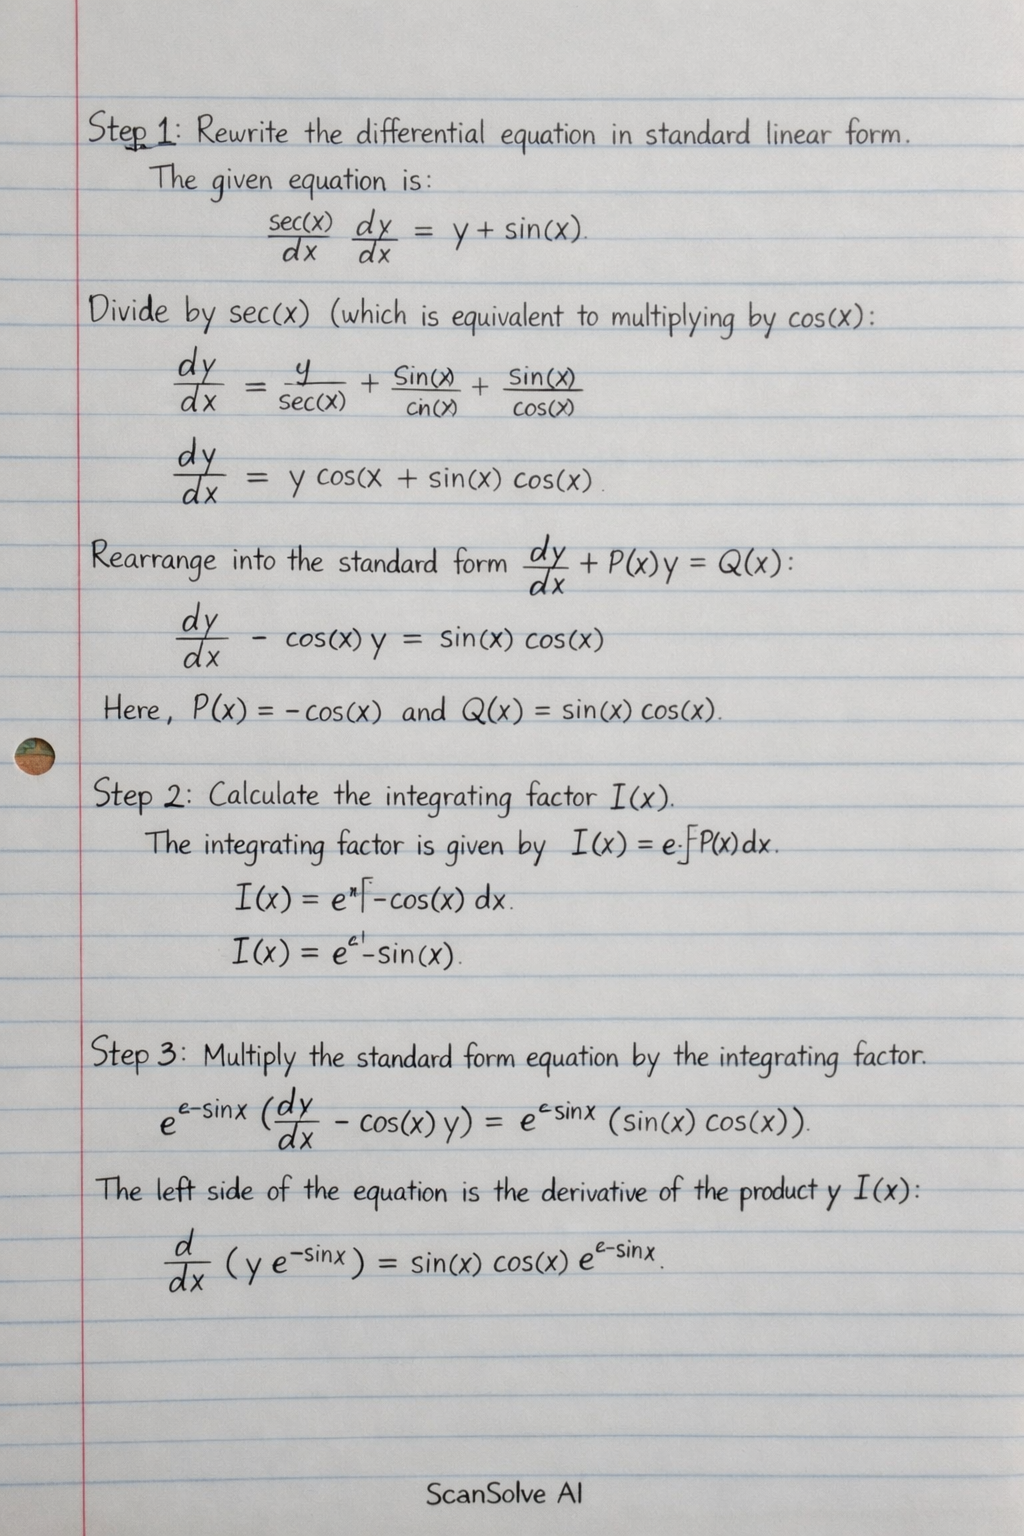 Step 1: Rewrite the differential equation in standard linear form.
The given equation is:
sec(x)/dx dy/dx = y + sin(x).
Divide by sec(x) (which is equivalent to multiplying by cos(x):
dy/dx = y/sec(x) + Sin(x)/cn(x) + sin(x)/cos(x)
dy/dx = y cos(x + sin(x) cos(x).
Rearrange into the standard form dy/dx + P(x)y = Q(x):
dy/dx - cos(x) y = sin(x) cos(x)
Here, P(x) = -cos(x) and Q(x) = sin(x) cos(x).
Step 2: Calculate the integrating factor I(x).
The integrating factor is given by I(x) = e·∫P(x)dx.
I(x) = e^x⌈-cos(x) dx.
I(x) = e^c'-sin(x).
Step 3: Multiply the standard form equation by the integrating factor.
e^e-sinx (dy/dx - cos(x) y) = e^c sinx (sin(x) cos(x)).
The left side of the equation is the derivative of the product y I(x):
d/dx (y e^-sinx) = sin(x) cos(x) e^e-sinx.
ScanSolve AI